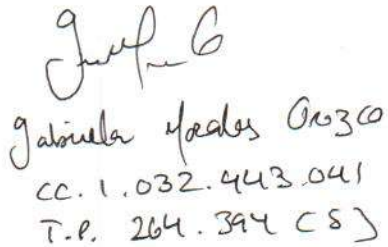 Gabriela Morales Orozco
CC. 1.032.443.041
T.P. 264.394 CSJ